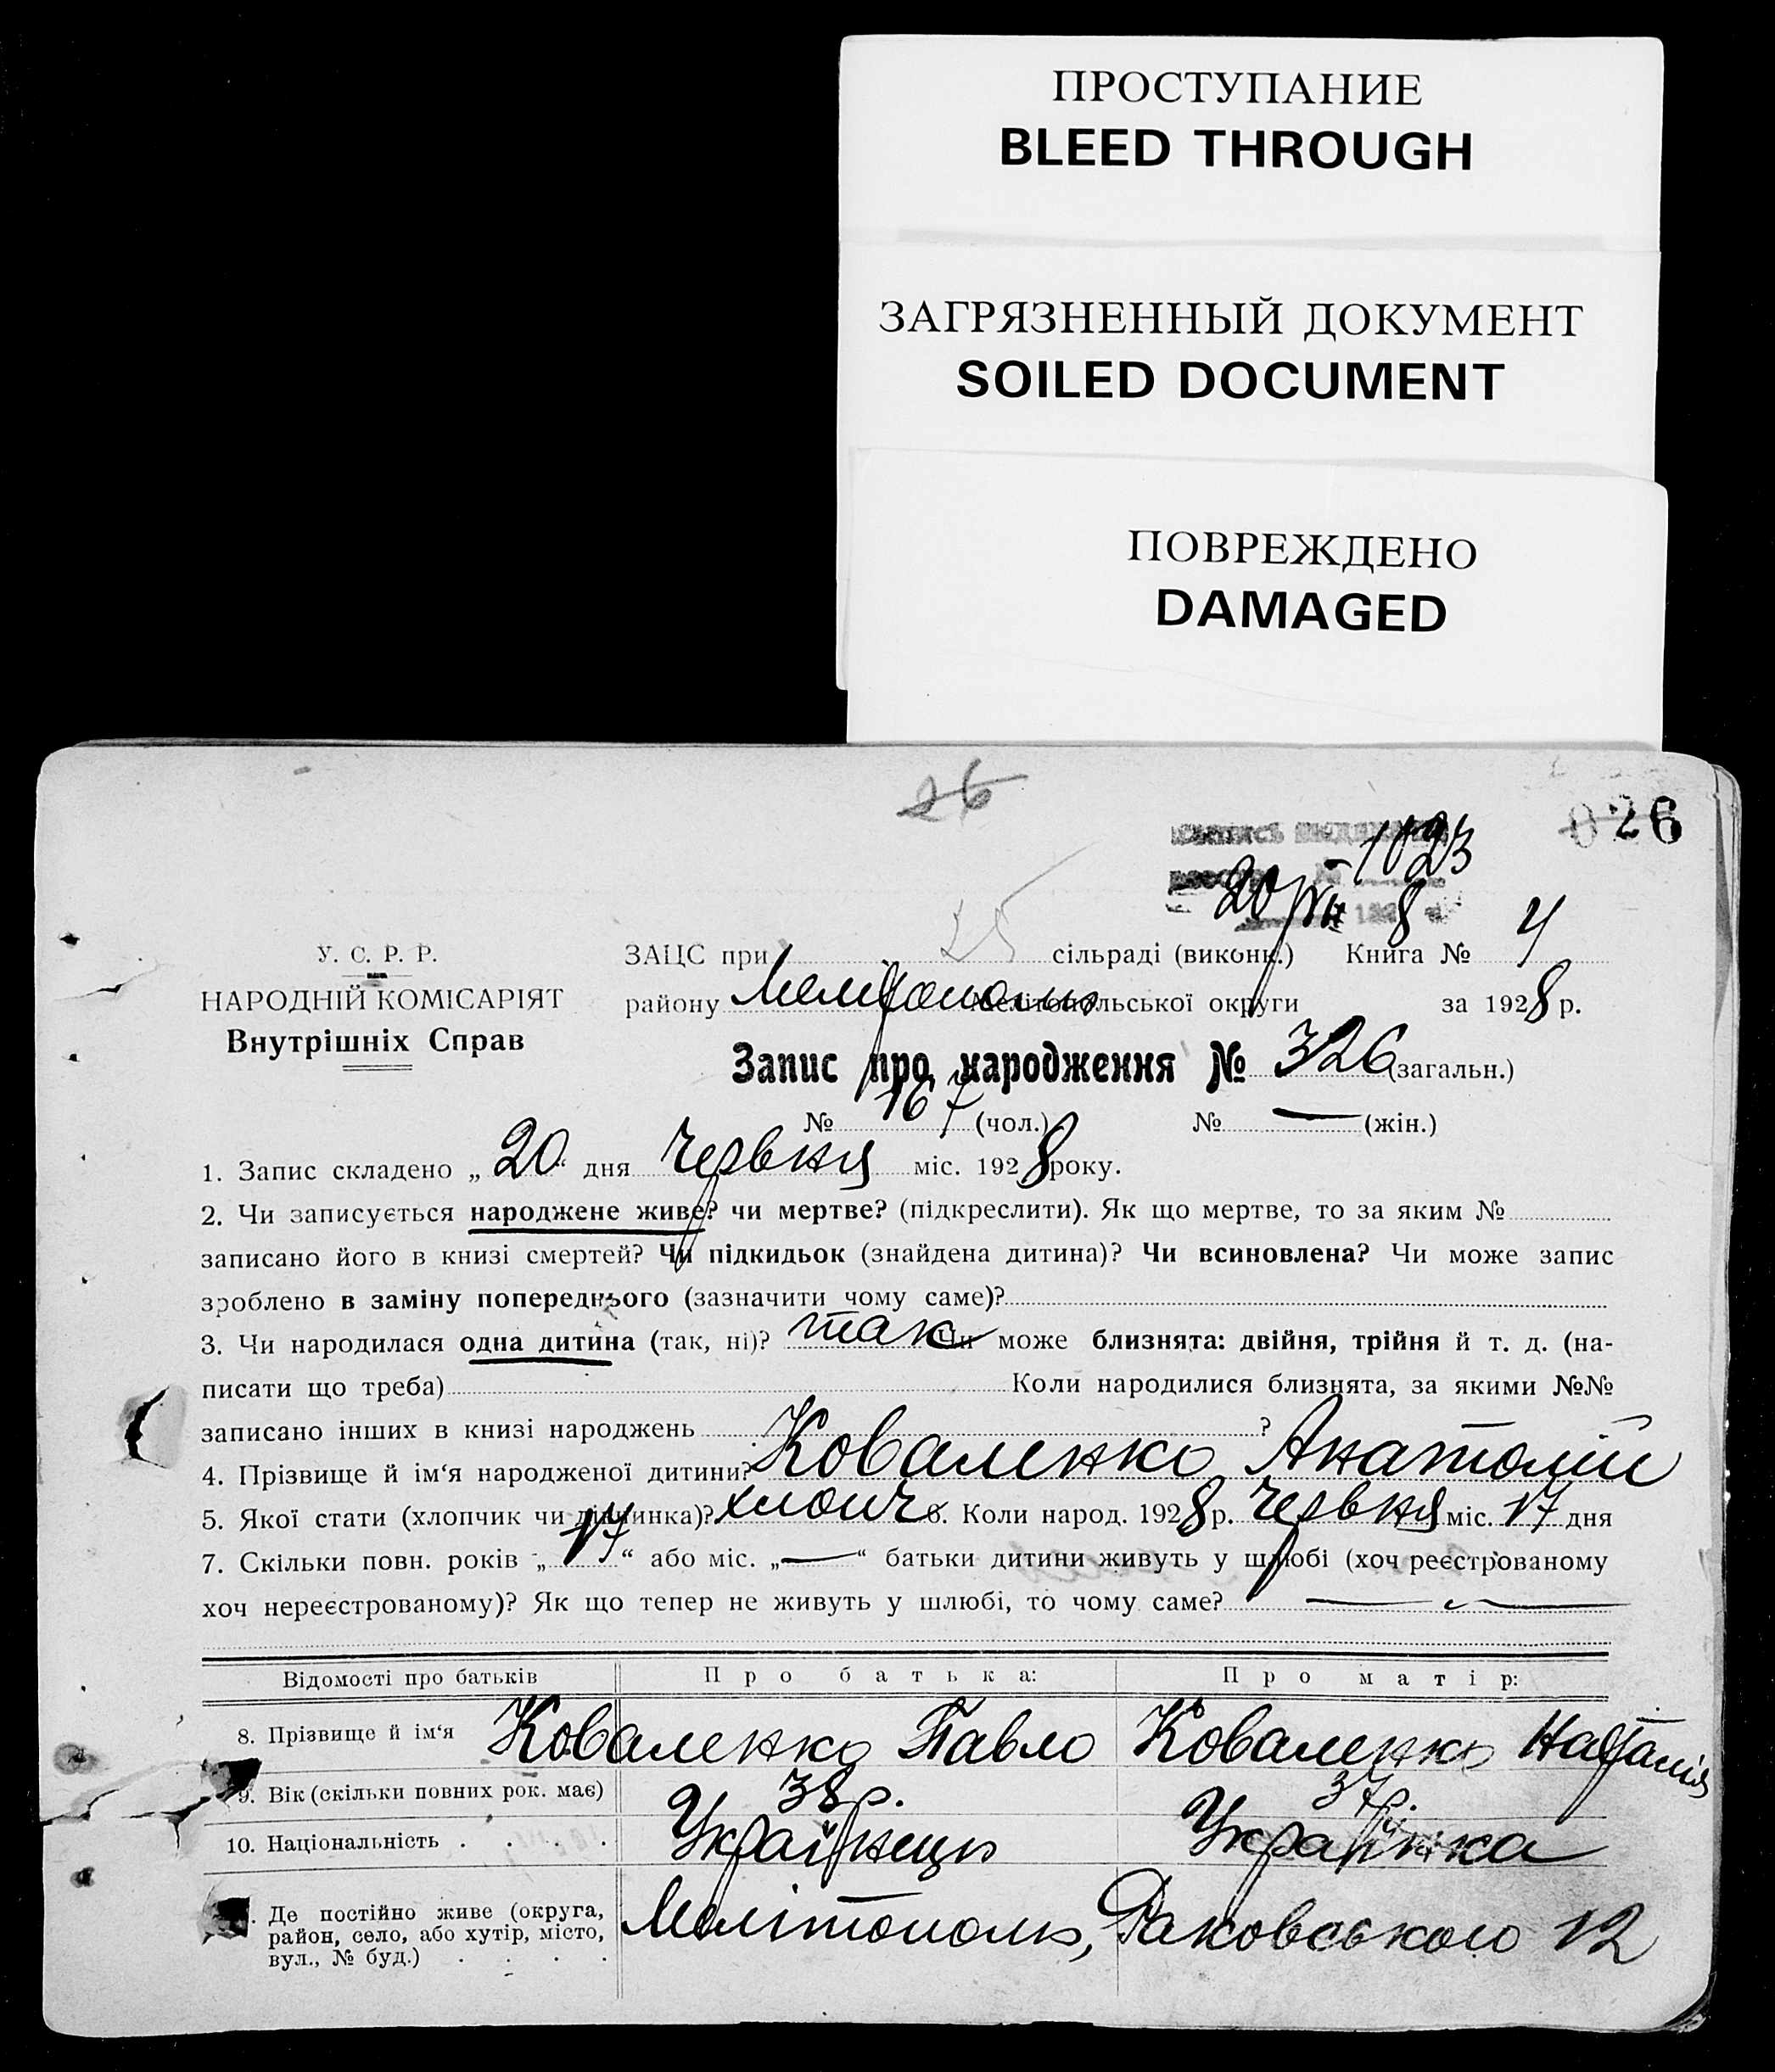 ПРОСТУПАНИЕ
BLEED THROUGH
ЗАГРЯЗНЕННЫЙ ДОКУМЕНТ
SOILED DOCUMENT
ПОВРЕЖДЕНО
DAMAGED
26
026
№ 1023
20/VII 8
У. С. Р. Р.
НАРОДНІЙ КОМІСАРІЯТ
Внутрішніх Справ
25
ЗАЦС при сільраді (виконк.) Книга № 4
району Мелітополь Мелітопольської округи за 1928 р.
Запис про народження № 326 (загальн.)
№ 167 (чол.) № — (жін.)
1. Запис складено „20“ дня Червня міс. 1928 року.
2. Чи записується народжене живе? чи мертве? (підкреслити). Як що мертве, то за яким №
записано його в книзі смертей? Чи підкидьок (знайдена дитина)? Чи всиновлена? Чи може запис
зроблено в заміну попереднього (зазначити чому саме)?
3. Чи народилася одна дитина (так, ні)? так Чи може близнята: двійня, трійня й т. д. (на-
писати що треба) Коли народилися близнята, за якими №№
записано інших в книзі народжень ?
4. Прізвище й ім‘я народженої дитини? Коваленко Анатолій
5. Якої стати (хлопчик чи дівчинка)? хлопч 6. Коли народ. 1928 р. Червня міс. 17 дня
7. Скільки повн. років „17“ або міс. „—“ батьки дитини живуть у шлюбі (хоч реєстрованому
хоч нереєстрованому)? Як що тепер не живуть у шлюбі, то чому саме? —
Відомості про батьків Про батька: Про матір:
8. Прізвище й ім‘я Коваленко Павло Коваленко Наталія
9. Вік (скільки повних рок. має) 38 р. 37 р.
10. Національність . . . . Українець Українка
Де постійно живе (округа,
район, село, або хутір, місто,
вул., № буд.) . . . .
Мелітополь, Раковського 12